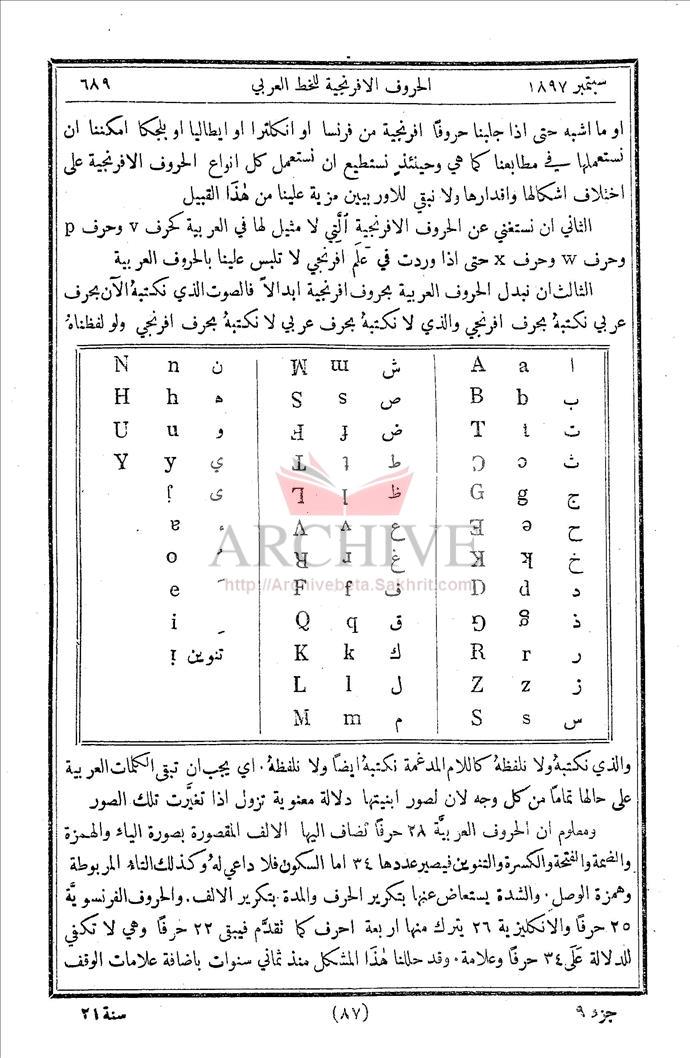 سبتمبر ١٨٩٧ الحروف الافرنجية للخط العربي ٦٨٩
او ما اشبه حتى اذا جلبنا حروفًا افرنجية من فرنسا او انكلترا او ايطاليا او بلجكا امكننا ان
نستعملها في مطابعنا كما هي وحينئذٍ نستطيع ان نستعمل كل انواع الحروف الافرنجية على
اختلاف اشكالها واقدارها ولا نبقي للاوربيين مزية علينا من هٰذا القبيل
الثاني ان نستغني عن الحروف الافرنجية الَّتي لا مثيل لها في العربية كحرف v وحرف p
وحرف w وحرف x حتى اذا وردت في عَلَم افرنجي لا تلبس علينا بالحروف العربية
الثالث ان نبدل الحروف العربية بحروف افرنجية ابدالاً فالصوت الذي نكتبهُ الآن بحرف
عربي نكتبهُ بحرف افرنجي والذي لا نكتبهُ بحرف عربي لا نكتبهُ بحرف افرنجي ولو لفظناهُ
ا a A
ب b B
ت t T
ث ɔ Ɔ
ج g G
ح ə Ǝ
خ ʞ
د d D
ذ
ر r R
ز z Z
س s S
ش ɯ
ص s S
ض
ط
ظ
ع v V
غ
ف f F
ق q Q
ك k K
ل l L
م m M
ن n N
ه h H
و u U
ي y Y
ى
ء ɐ
ُ o
َ e
ِ i
تنوين !
ARCHIVE
http://Archivebeta.Sakhrit.com
والذي نكتبهُ ولا نلفظهُ كاللام المدغمة نكتبهُ ايضًا ولا نلفظهُ. اي يجب ان تبقى الكلمات العربية
على حالها تمامًا من كل وجه لان لصور ابنيتها دلالة معنوية تزول اذا تغيَّرت تلك الصور
ومعلوم ان الحروف العربيَّة ٢٨ حرفًا تضاف اليها الالف المقصورة بصورة الياء والهمزة
والضمة والفتحة والكسرة والتنوين فيصير عددها ٣٤ اما السكون فلا داعي لهُ وكذلك التاء المربوطة
وهمزة الوصل. والشدة يستعاض عنها بتكرير الحرف والمدة بتكرير الالف. والحروف الفرنسويَّة
٢٥ حرفًا والانكليزية ٢٦ يترك منها اربعة احرف كما تقدَّم فيبقى ٢٢ حرفًا وهي لا تكفي
للدلالة عَلَى ٣٤ حرفًا وعلامة. وقد حللنا هٰذا المشكل منذ ثماني سنوات باضافة علامات الوقف
جزء ٩ (٨٧) سنة ٢١